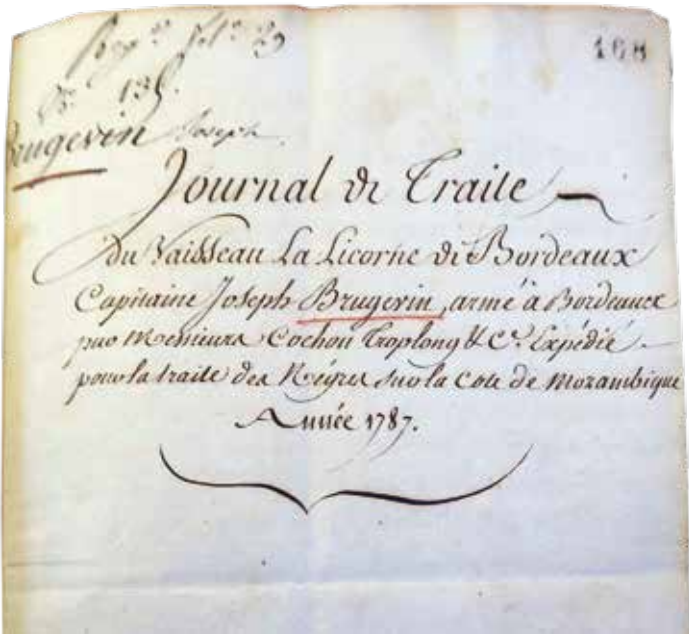 168
135.
Brugevin Joseph
Journal de Traite
Du Vaisseau La Licorne de Bordeaux
Capitaine Joseph Brugevin, armé à Bordeaux
par Messieurs Cochon Troplong & Cie. Expédié
pour la traite des Négres sur la cote de Mozambique
Année 1787.